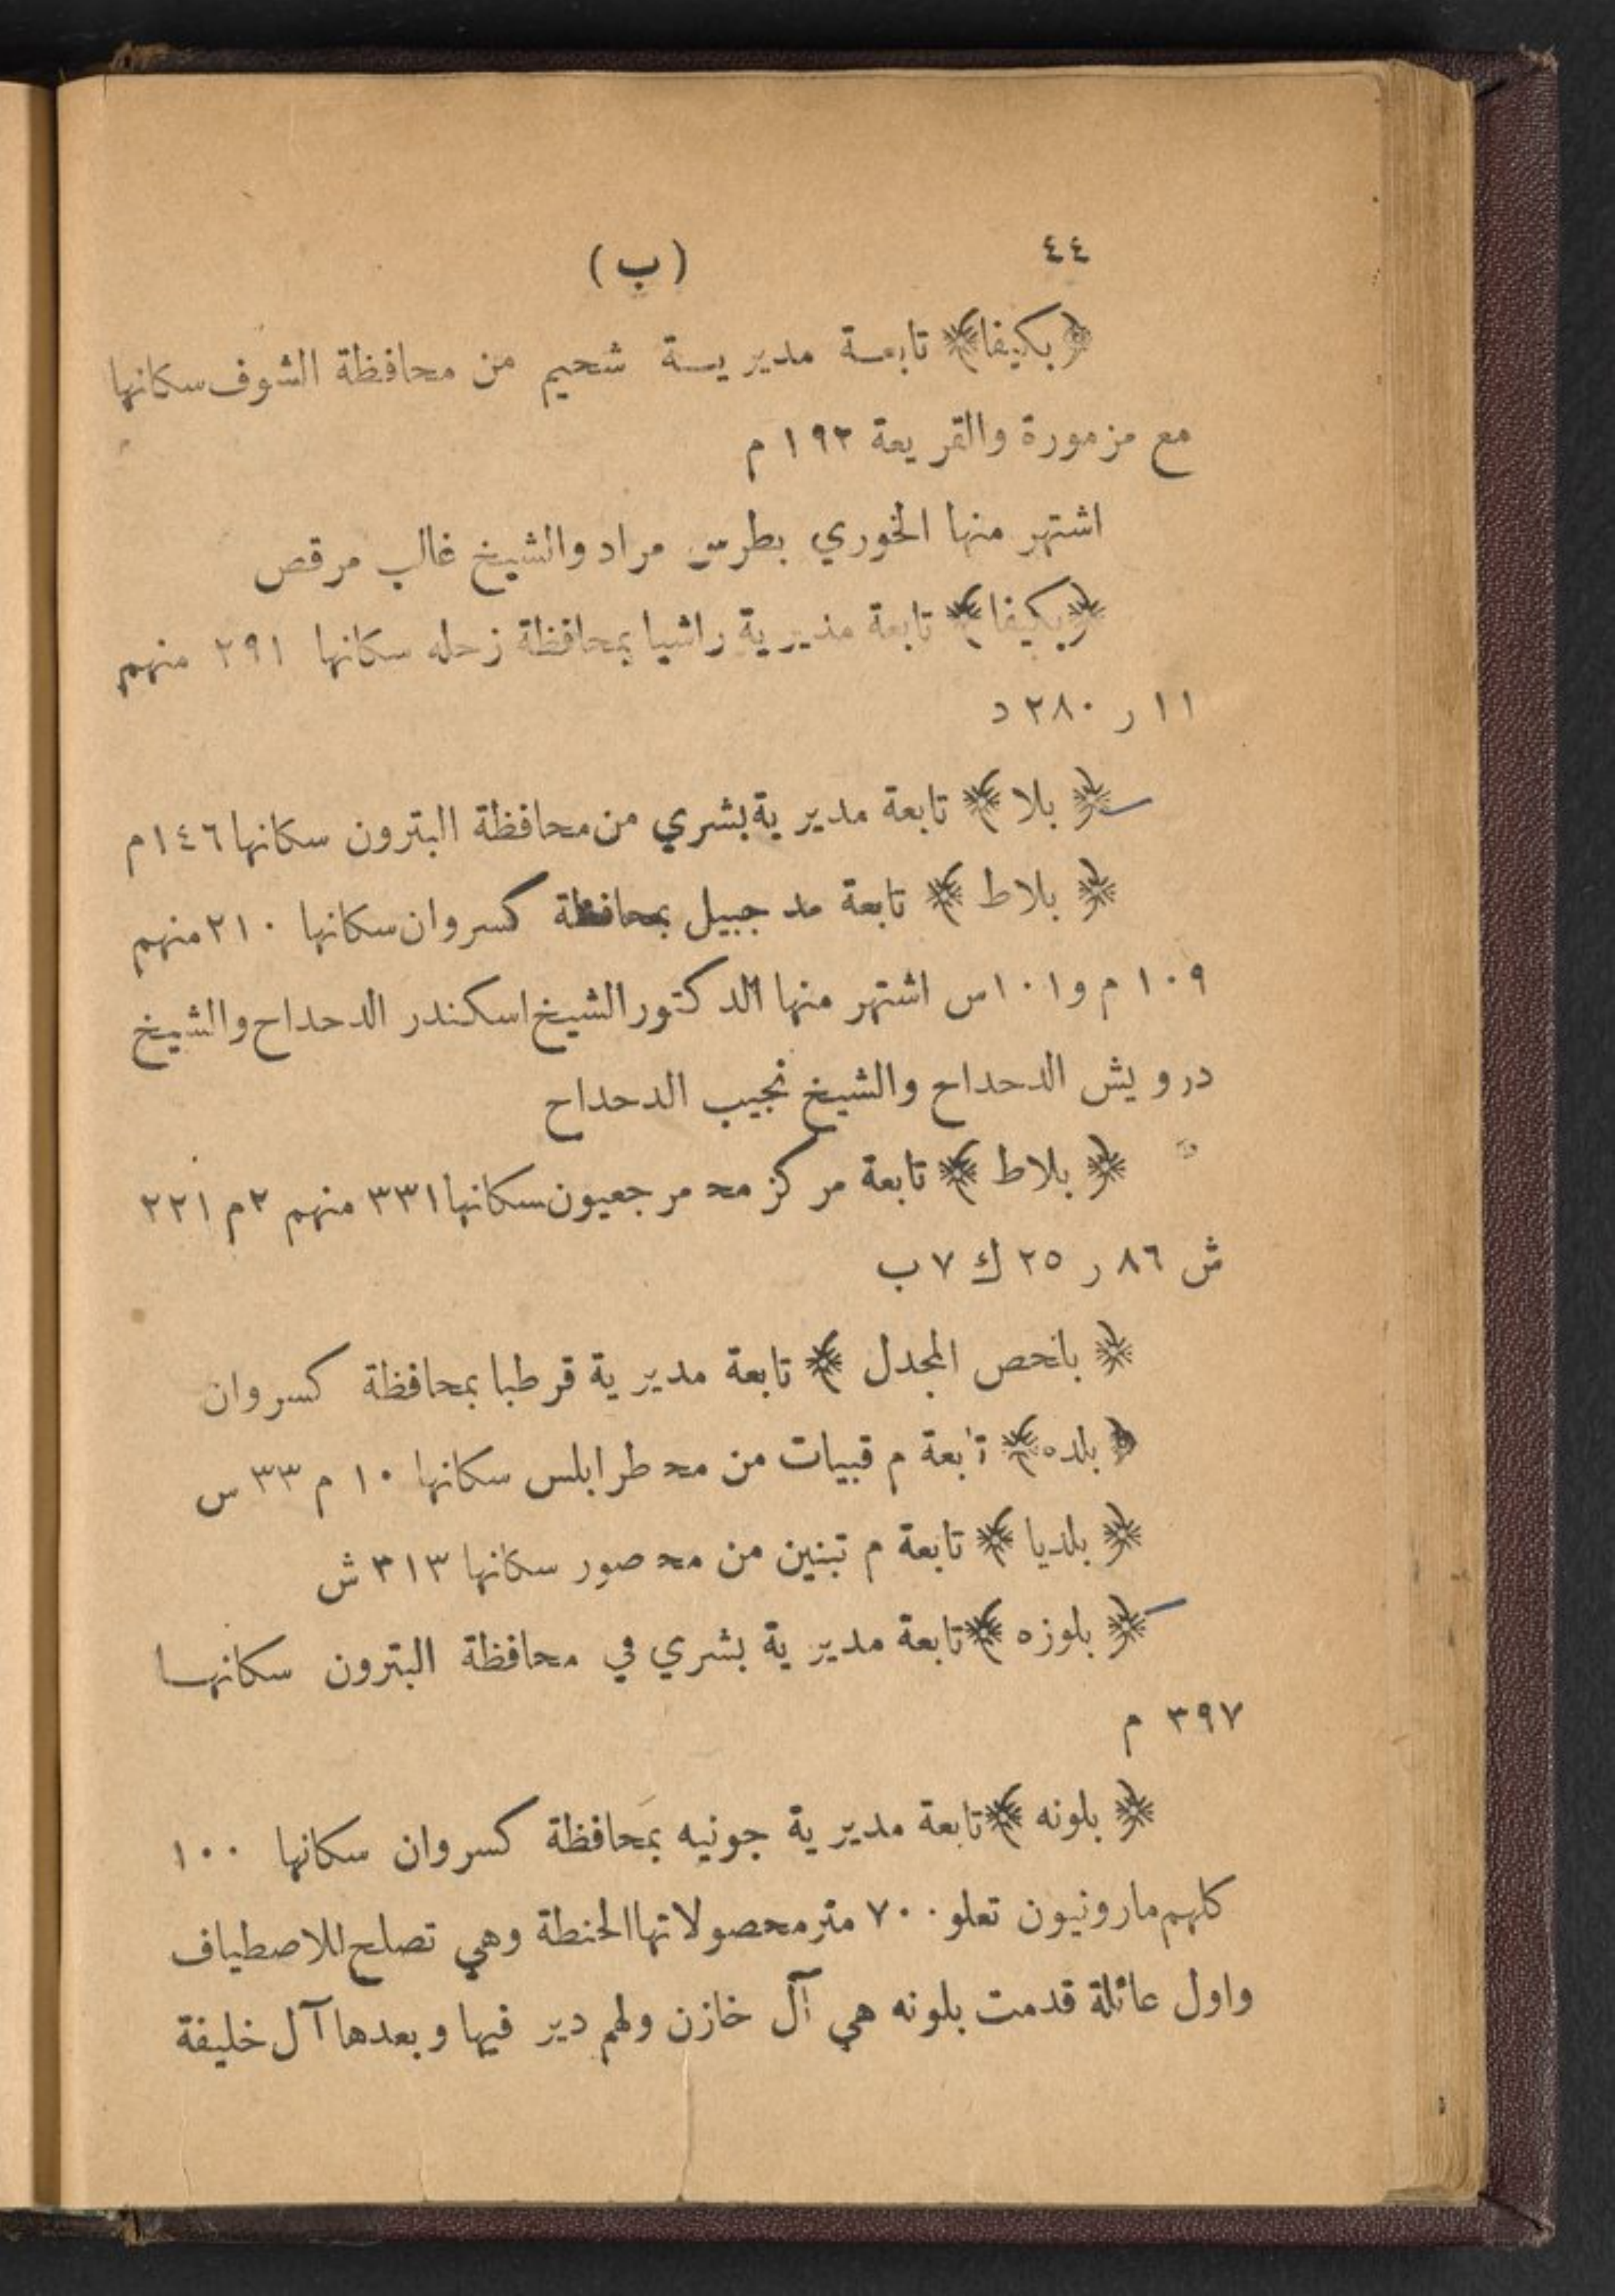 ٤٤ (ب)
﴿بكيفا﴾ تابعة مديرية شحيم من محافظة الشوف سكانها
مع مزمورة والقريعة ١٩٢ م
اشتهر منها الخوري بطرس مراد والشيخ غالب مرقص
﴿بكيفا﴾ تابعة مديرية راشيا بمحافظة زحله سكانها ٢٩١ منهم
١١ ر ٢٨٠ د
﴿بلا﴾ تابعة مديرية بشري من محافظة البترون سكانها ١٤٦ م
﴿بلاط﴾ تابعة مد جبيل بمحافظة كسروان سكانها ٢١٠ منهم
١٠٩ م و١٠١ س اشتهر منها الدكتور الشيخ اسكندر الدحداح والشيخ
درويش الدحداح والشيخ نجيب الدحداح
﴿بلاط﴾ تابعة مركز مح مرجعيون سكانها ٣٣١ منهم ٢ م ٢٢١
ش ٨٦ ر ٢٥ ك ٧ ب
﴿بلحص المجدل﴾ تابعة مديرية قرطبا بمحافظة كسروان
﴿بلده﴾ تابعة م قبيات من مح طرابلس سكانها ١٠ م ٣٣ س
﴿بلديا﴾ تابعة م تبنين من مح صور سكانها ٣١٣ ش
﴿بلوزه﴾ تابعة مديرية بشري في محافظة البترون سكانها
٣٩٧ م
﴿بلونه﴾ تابعة مديرية جونيه بمحافظة كسروان سكانها ١٠٠
كلهم مارونيون تعلو ٧٠٠ متر محصولاتها الحنطة وهي تصلح للاصطياف
واول عائلة قدمت بلونه هي آل خازن ولهم دير فيها وبعدها آل خليفة